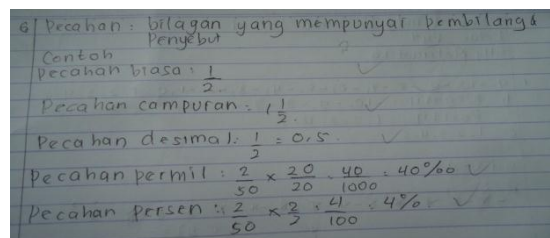 6 Pecahan : bilagan yang mempunyai pembilang &
Penyebut
Contoh
Pecahan biasa : 1/2
Pecahan campuran : 1 1/2.
Pecahan desimal : 1/2 = 0,5.
Pecahan permil : 2/50 × 20/20 = 40/1000 = 40‰
Pecahan persen : 2/50 × 2/2 = 4/100 = 4%